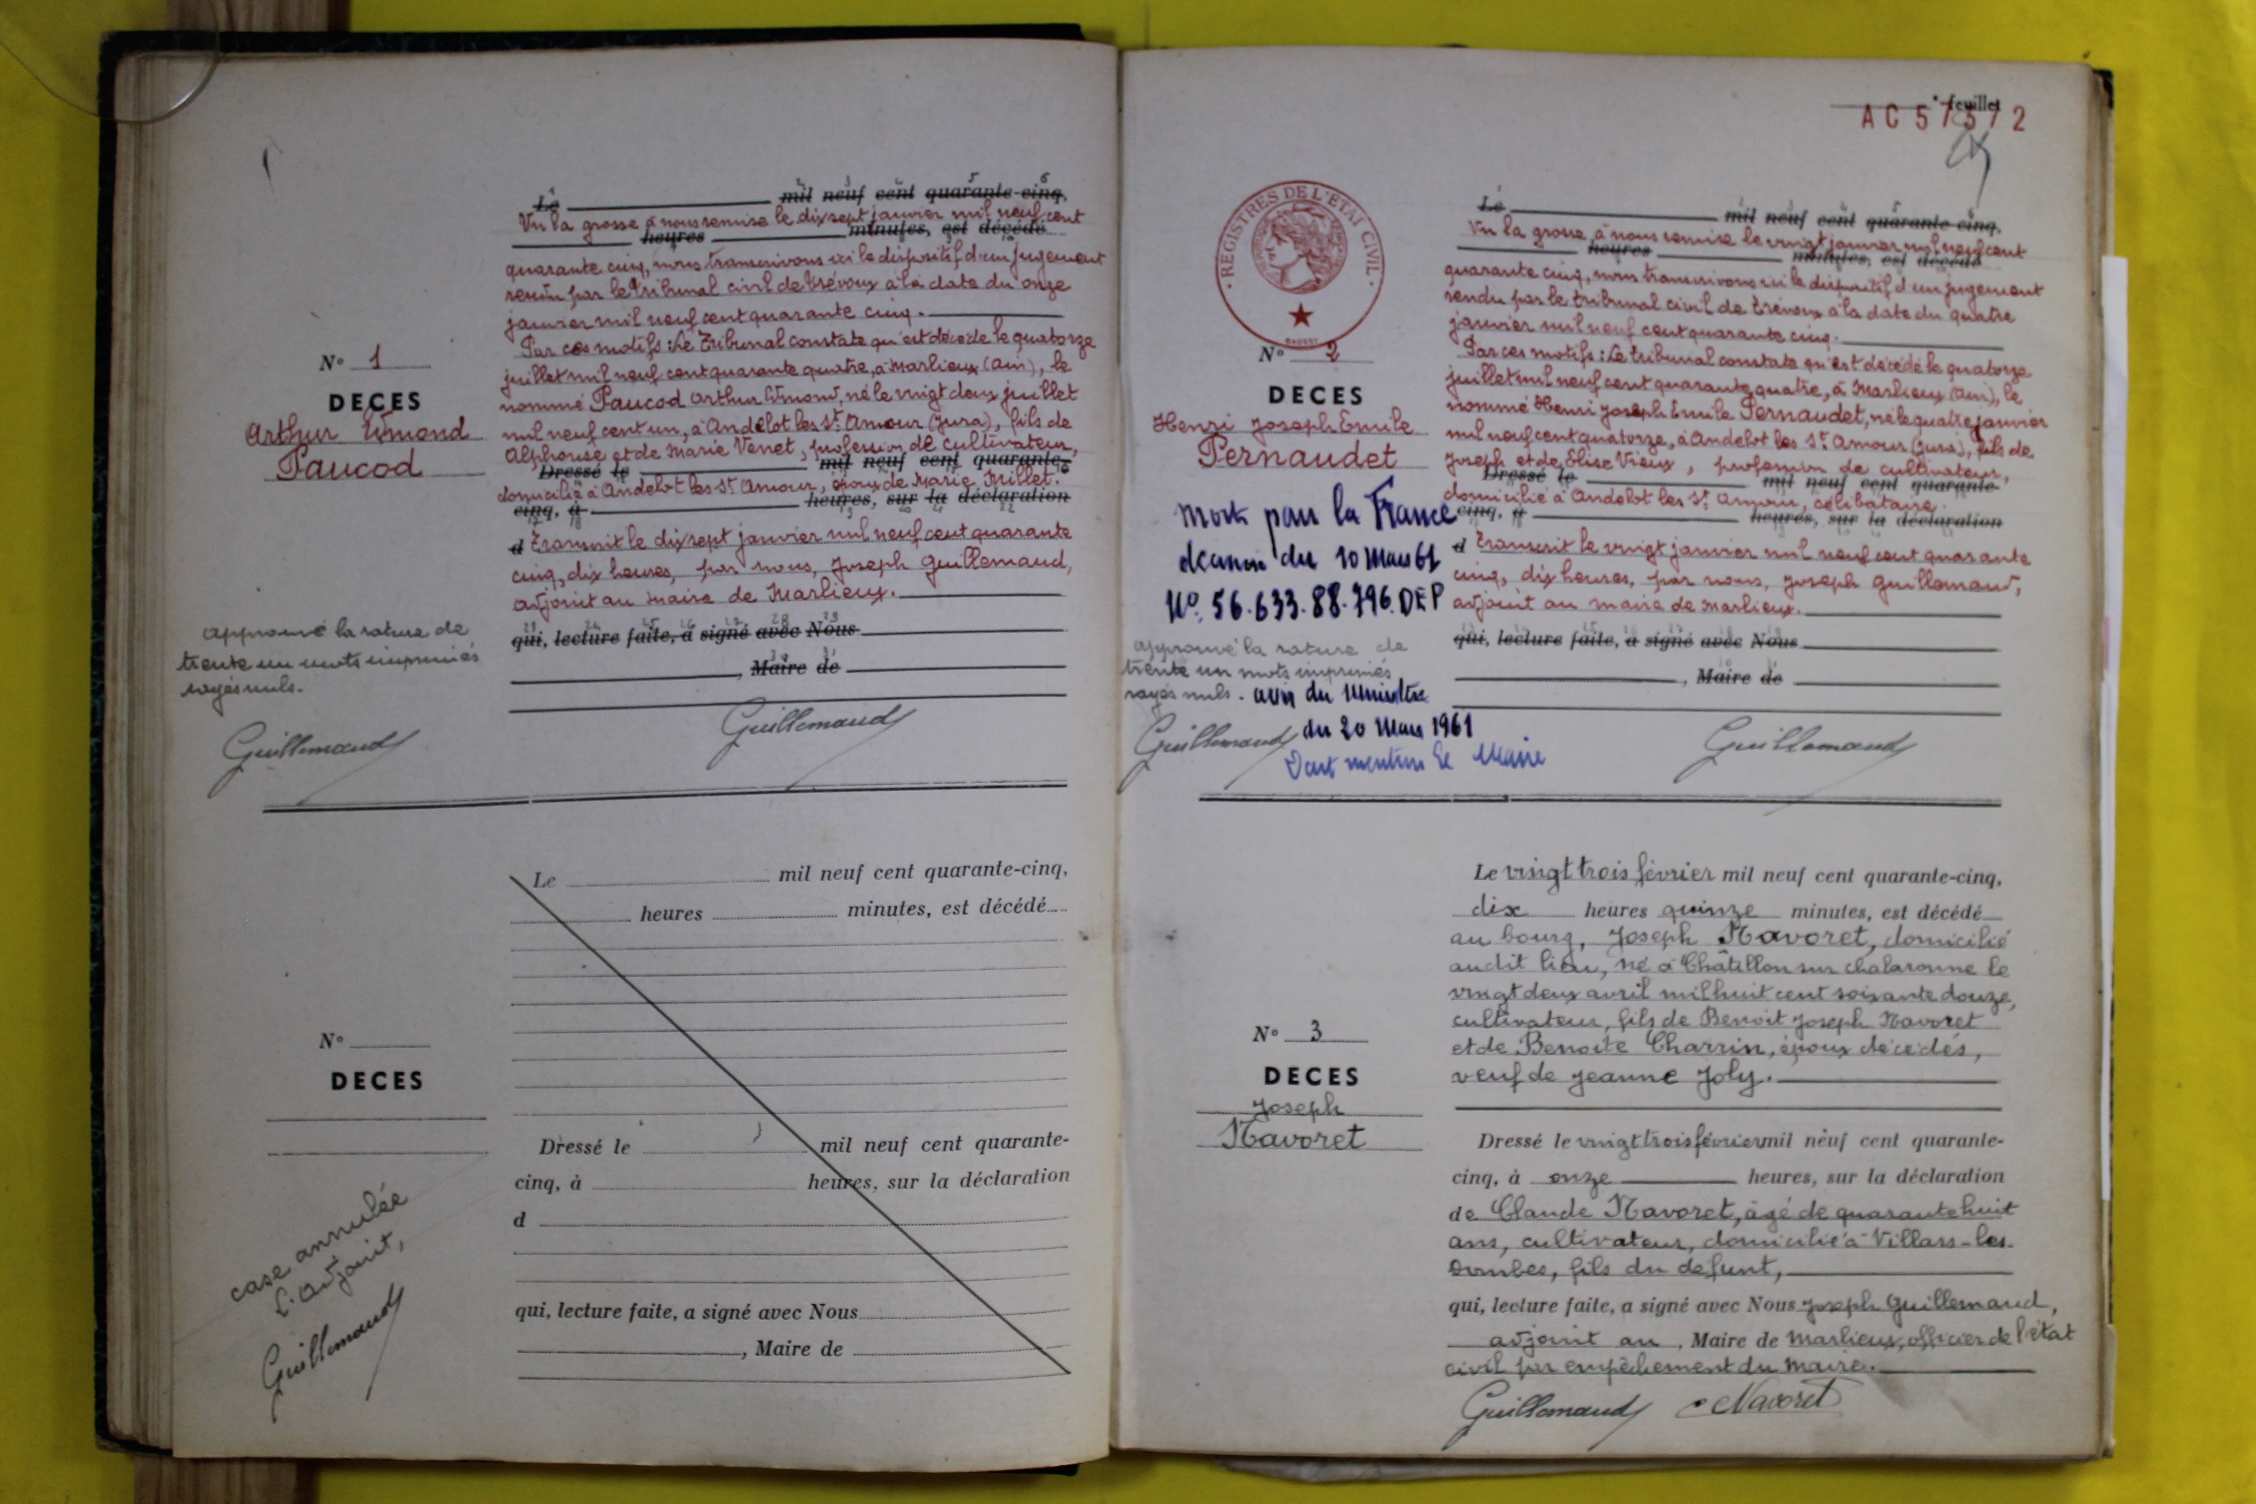 N° 1
DECES
Arthur Edmond
Paucod
Le mil neuf cent quarante-cinq,
Vu la grosse à nous remise le dix sept janvier mil neuf cent
heures minutes, est décédé
quarante cinq, nous transcrivons ici le dispositif d'un jugement
rendu par le tribunal civil de Trévoux à la date du onze
janvier mil neuf cent quarante cinq.
Par ces motifs : Le Tribunal constate qu'est décédé le quatorze
juillet mil neuf cent quarante quatre, à Marlieux (Ain), le
nommé Paucod Arthur Edmond, né le vingt deux juillet
mil neuf cent un, à Andelot les St. Amour (Jura), fils de
Alphouse et de Marie Venet, profession de cultivateur,
Dressé le mil neuf cent quarante-
domicilié à Andelot les St. Amour, époux de Marie Millet.
cinq, à heures, sur la déclaration
d Transcrit le dix sept janvier mil neuf cent quarante
cinq, dix heures, par nous, Joseph Guillemaud,
adjoint au maire de Marlieux.
qui, lecture faite, a signé avec Nous
, Maire de
approuvé la rature de
trente un mots imprimés
rayés nuls.
Guillemaud
Guillemaud
N°
DECES
Le mil neuf cent quarante-cinq,
heures minutes, est décédé
Dressé le mil neuf cent quarante-
cinq, à heures, sur la déclaration
d
qui, lecture faite, a signé avec Nous
, Maire de
case annulée
L'adjoint,
Guillemaud
feuillet
AC 57572
REGISTRES DE L'ETAT CIVIL
N° 2
DECES
Henri Joseph Emile
Pernaudet
Mort pour la France
décision du 10 Mars 61
N°. 56.633.88.796.DEP
approuvé la rature de
trente un mots imprimés
rayés nuls. avis du Ministre
du 20 Mars 1961
Guillemaud
Dont mention Le Maire
Le mil neuf cent quarante-cinq,
Vu la grosse à nous remise le vingt janvier mil neuf cent
heures minutes, est décédé
quarante cinq, nous transcrivons ici le dispositif d'un jugement
rendu par le tribunal civil de Trévoux à la date du quatre
janvier mil neuf cent quarante cinq.
Par ces motifs : Le tribunal constate qu'est décédé le quatorze
juillet mil neuf cent quarante quatre, à Marlieux (Ain), le
nommé Henri Joseph Emile Pernaudet, né le quatre janvier
mil neuf cent quatorze, à Andelot les St. Amour (Jura), fils de
Joseph et de Elise Vieux, profession de cultivateur,
Dressé le mil neuf cent quarante-
domicilié à Andelot les St. Amour, célibataire.
cinq, à heures, sur la déclaration
d Transcrit le vingt janvier mil neuf cent quarante
cinq, dix heures, par nous, Joseph Guillemaud,
adjoint au maire de Marlieux.
qui, lecture faite, a signé avec Nous
, Maire de
Guillemaud
N° 3
DECES
Joseph
Navoret
Le vingt trois février mil neuf cent quarante-cinq,
dix heures quinze minutes, est décédé
au bourg, Joseph Navoret, domicilié
audit lieu, né à Châtillon sur Chalaronne le
vingt deux avril mil huit cent soixante douze,
cultivateur, fils de Benoit Joseph Navoret
et de Benoite Charrin, époux décédés,
veuf de Jeanne Joly.
Dressé le vingt trois février mil neuf cent quarante-
cinq, à onze heures, sur la déclaration
de Claude Navoret, âgé de quarante huit
ans, cultivateur, domicilié à Villars-les-
Dombes, fils du défunt,
qui, lecture faite, a signé avec Nous Joseph Guillemaud,
adjoint au , Maire de Marlieux, officier de l'état
civil par empêchement du maire.
Guillemaud C Navoret